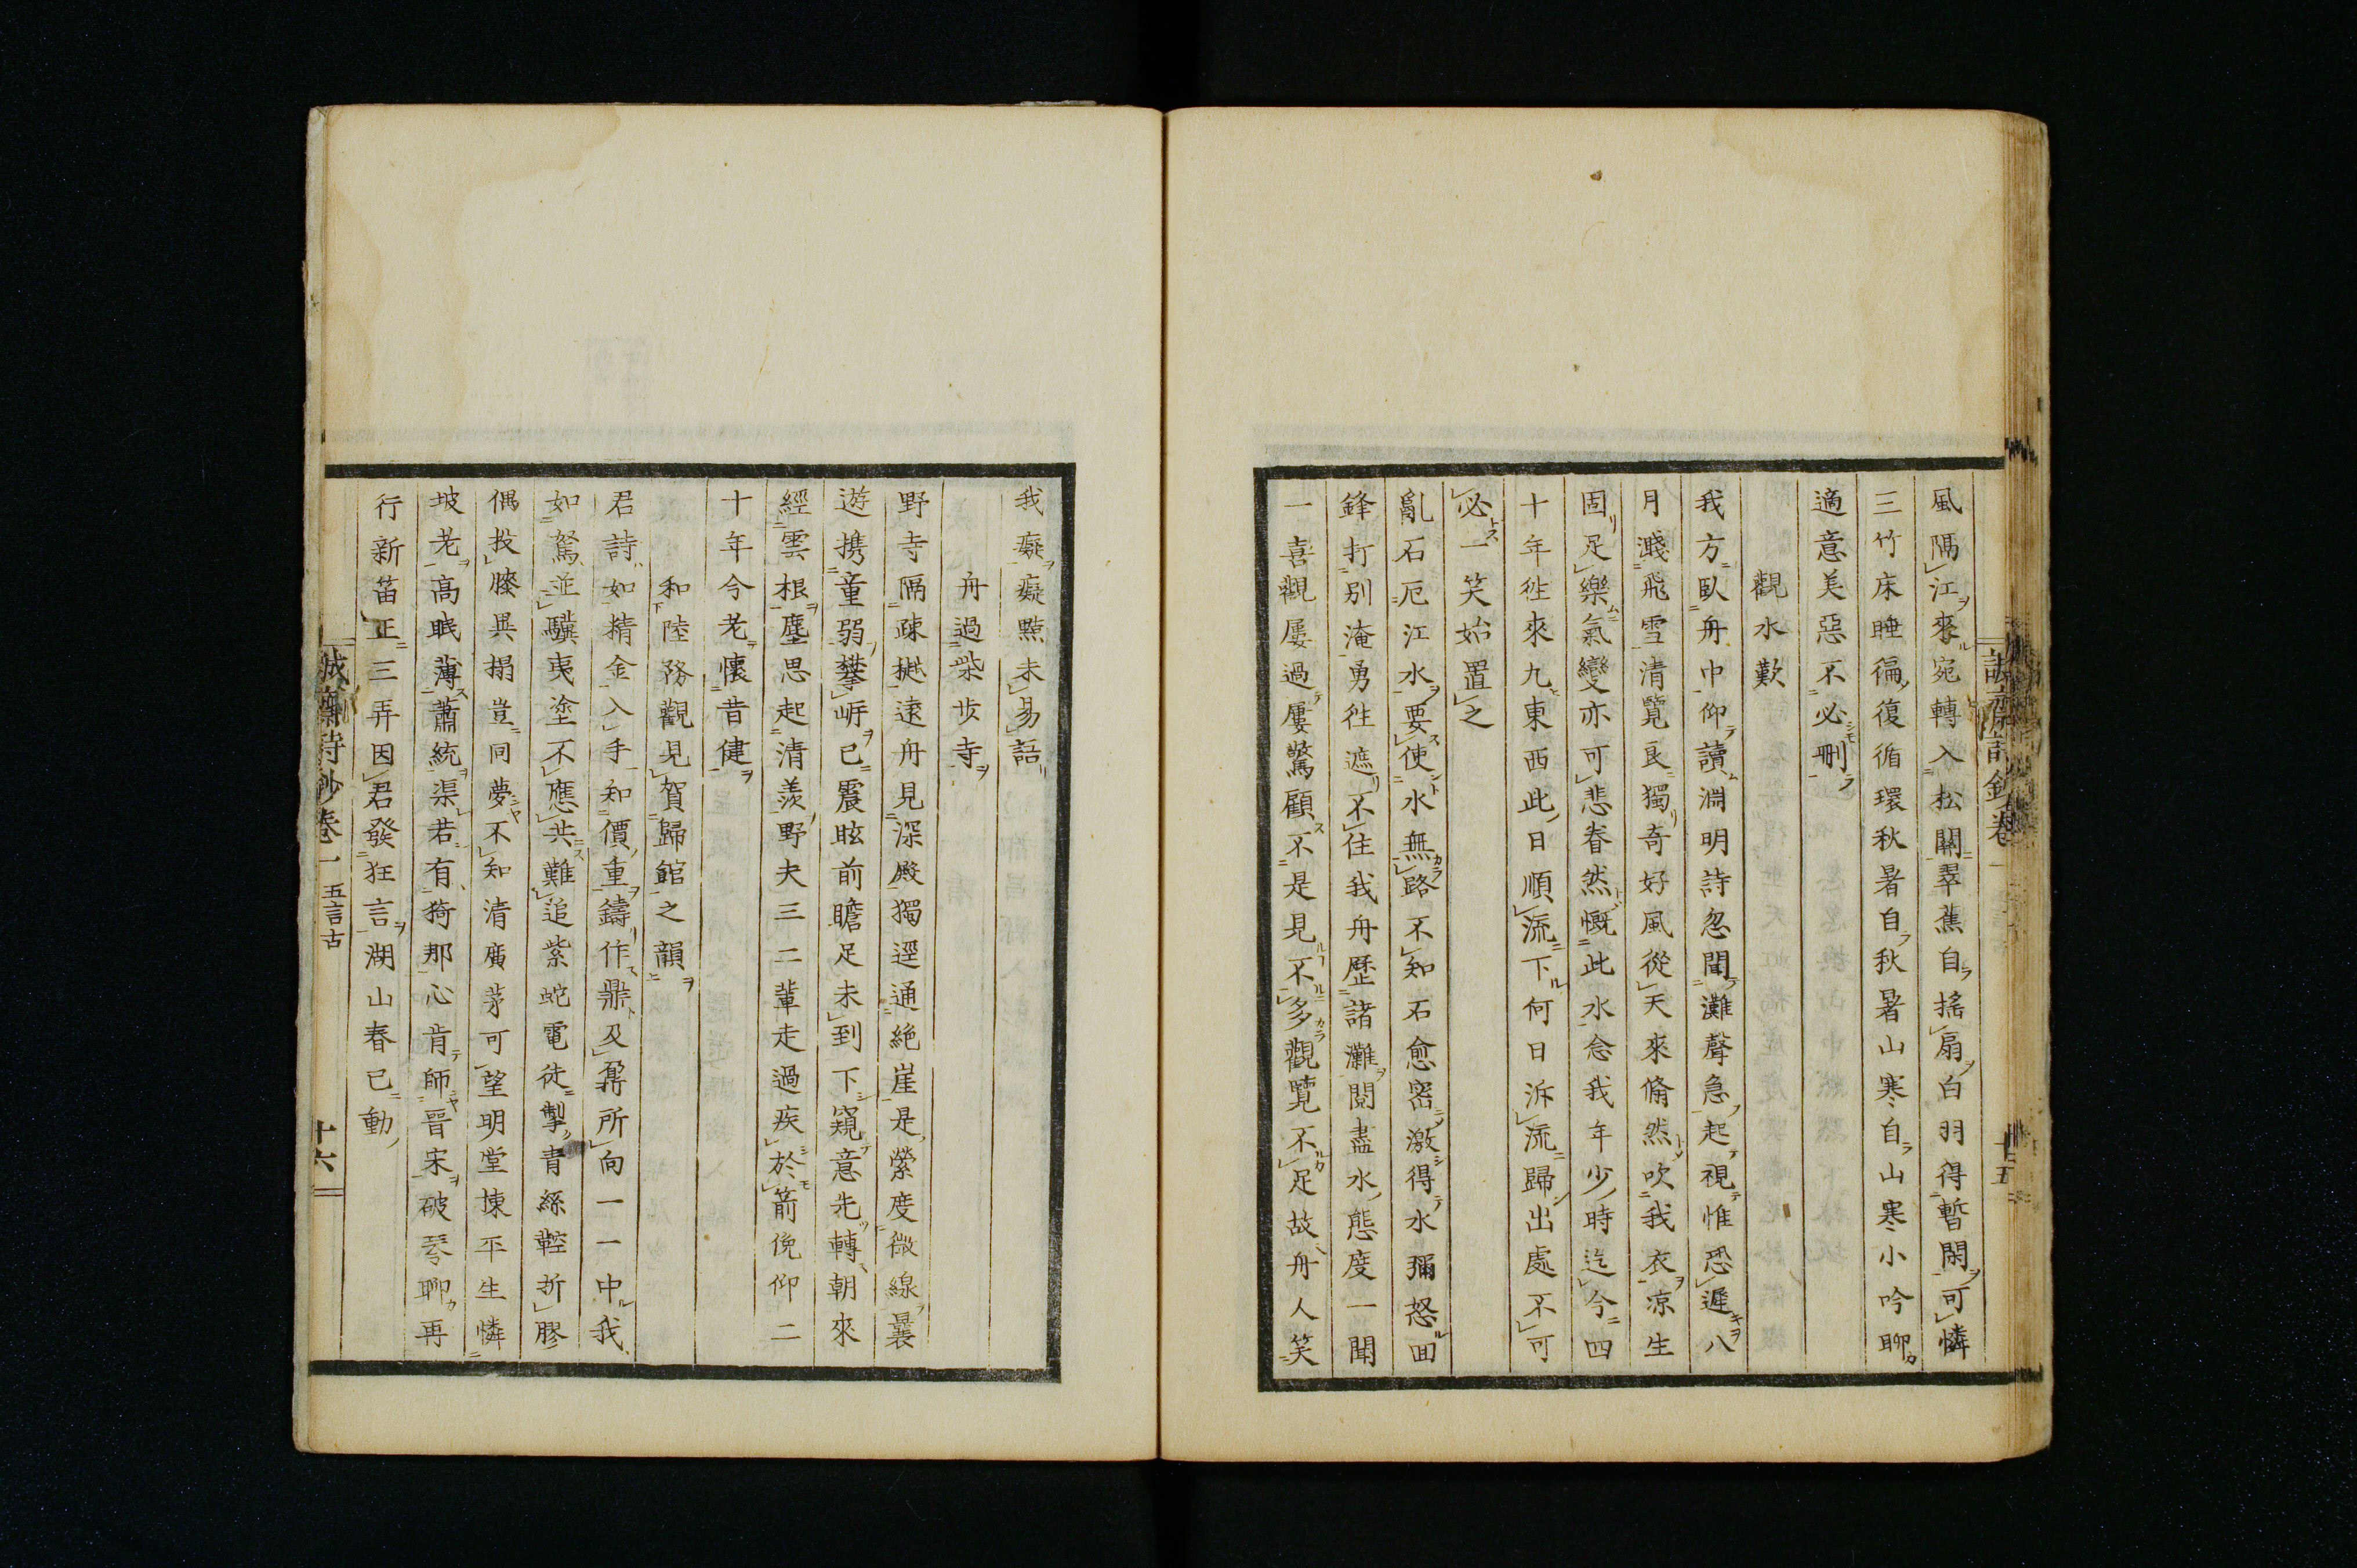 風隅江來宛轉入松關翠蕉自搖扇白羽得暫閑可憐
三竹床睡徧復循環秋暑自秋暑山寒自山寒小吟聊
適意美惡不必刪
觀水歎
我方臥舟中仰讀淵明詩忽聞灘聲急起視惟恐遲八
月濺飛雪清覽良獨奇好風從天來翛然吹我衣凉生
固足樂氣變亦可悲眷然慨此水念我年少時迄今四
十年徃來九東西此日順流下何日泝流歸出處不可
必一笑始置之
亂石厄江水要使水無路不知石愈密激得水彌怒回
鋒打別淹勇徃遮不住我舟歷諸灘閱盡水態度一聞
一喜觀屢過屢驚顧不是見不多觀覽不足故舟人笑
我癡癡黠未易語
舟過柴步寺
野寺隔疎樾遠舟見深殿獨逕通絕崖是縈度微線曩
遊携童弱攀崿已震眩前瞻足未到下窺意先轉朝來
經雲根塵思起清羨野夫三二輩走過疾於箭俛仰二
十年今老懷昔健
和陸務觀見賀歸館之韻
君詩如精金入手知價重鑄作鼎及鼐所向一一中我
如駑並驥夷塗不應共難追紫蛇電徒掣青絲鞚折膠
偶投漆異榻豈同夢不知清廣茅可望明堂棟平生憐
坡老高眠薄蕭統渠若有猗那心肯師晉宋破琴聊再
行新笛正三弄因君發狂言湖山春已動
誠齋詩鈔卷一 五言古
十六
誠齋詩鈔卷一
十五